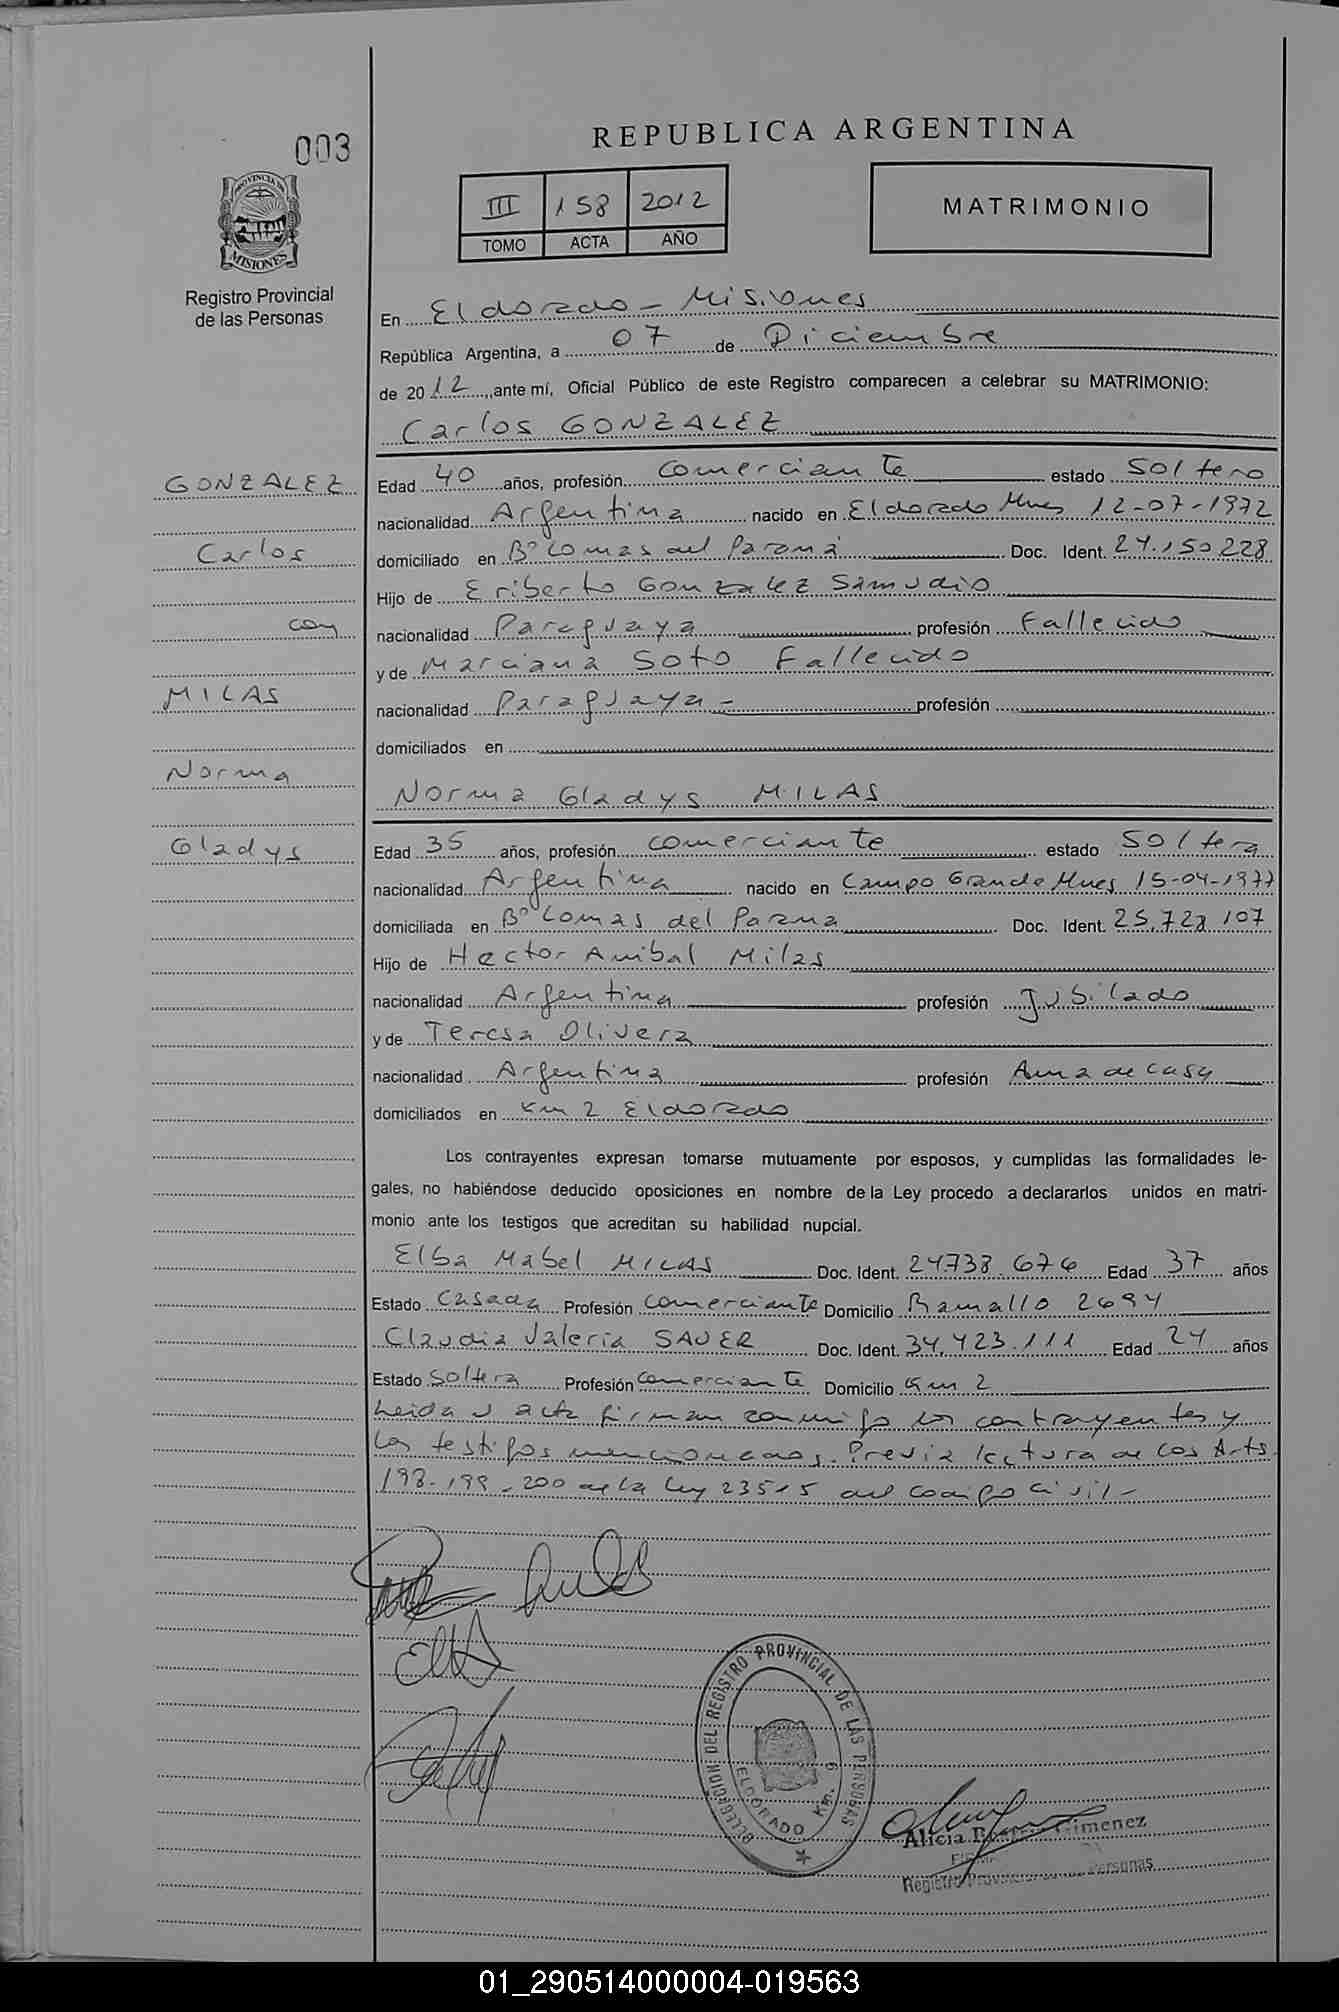 003
REPUBLICA ARGENTINA
III 158 2012
TOMO ACTA AÑO
MATRIMONIO
PROVINCIA DE
MISIONES
Registro Provincial
de las Personas
En Eldorado - Misiones
República Argentina, a 07 de Diciembre
de 2012, ante mí, Oficial Público de este Registro comparecen a celebrar su MATRIMONIO:
Carlos GONZALEZ
GONZALEZ
Carlos
con
MILAS
Norma
Gladys
Edad 40 años, profesión comerciante estado Soltero
nacionalidad Argentina nacido en Eldorado Mnes 12-07-1972
domiciliado en Bº Lomas del Paraná Doc. Ident. 24.150.228
Hijo de Eriberto Gonzalez Samudio
nacionalidad Paraguaya profesión Fallecido
y de Marciana Soto Fallecido
nacionalidad Paraguaya - profesión
domiciliados en
Norma Gladys MILAS
Edad 35 años, profesión comerciante estado Soltera
nacionalidad Argentina nacido en Campo Grande Mnes 15-04-1977
domiciliada en Bº Lomas del Parana Doc. Ident. 25.728.107
Hijo de Hector Anibal Milas
nacionalidad Argentina profesión Jubilado
y de Teresa Olivera
nacionalidad Argentina profesión Ama de casa
domiciliados en Km 2 Eldorado
Los contrayentes expresan tomarse mutuamente por esposos, y cumplidas las formalidades le-
gales, no habiéndose deducido oposiciones en nombre de la Ley procedo a declararlos unidos en matri-
monio ante los testigos que acreditan su habilidad nupcial.
Elba Mabel MILAS Doc. Ident. 24738.676 Edad 37 años
Estado Casada Profesión comerciante Domicilio Ramallo 2694
Claudia Valeria SAUER Doc. Ident. 34.423.111 Edad 24 años
Estado Soltera Profesión comerciante Domicilio Km 2
Leida el acta firman conmigo los contrayentes y
los testigos mencionados. Previa lectura de los Arts.
198-199-200 de la Ley 23515 del codigo civil -
DELEGACION DEL REGISTRO PROVINCIAL DE LAS PERSONAS
ELDORADO Km. 9
Alicia Gimenez
Registro Provincial de las Personas
01_290514000004-019563